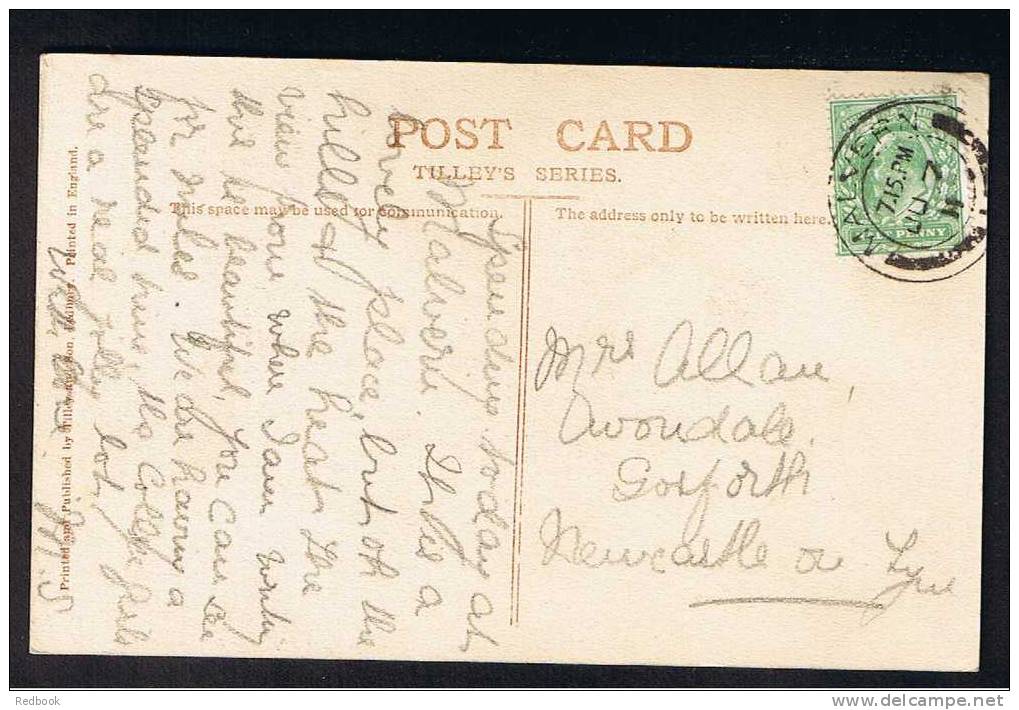 POST CARD
TILLEY'S SERIES.
This space may be used for communication.
The address only to be written here.
MALVERN
7.15.PM
JU 7
11
PENNY
Spending today at
Malvern. It is a
lovely place, but oh the
hills & the heat. The
view from where I am writing
this is beautiful, you can see
for miles. We are having a
splendid time, the College girls
are a real jolly lot,
Mrs Allan,
Avondale,
Gosforth
Newcastle on Tyne
Printed and Published by Tilley and Son, Ledbury. Printed in England.
Redbook
www.delcampe.net